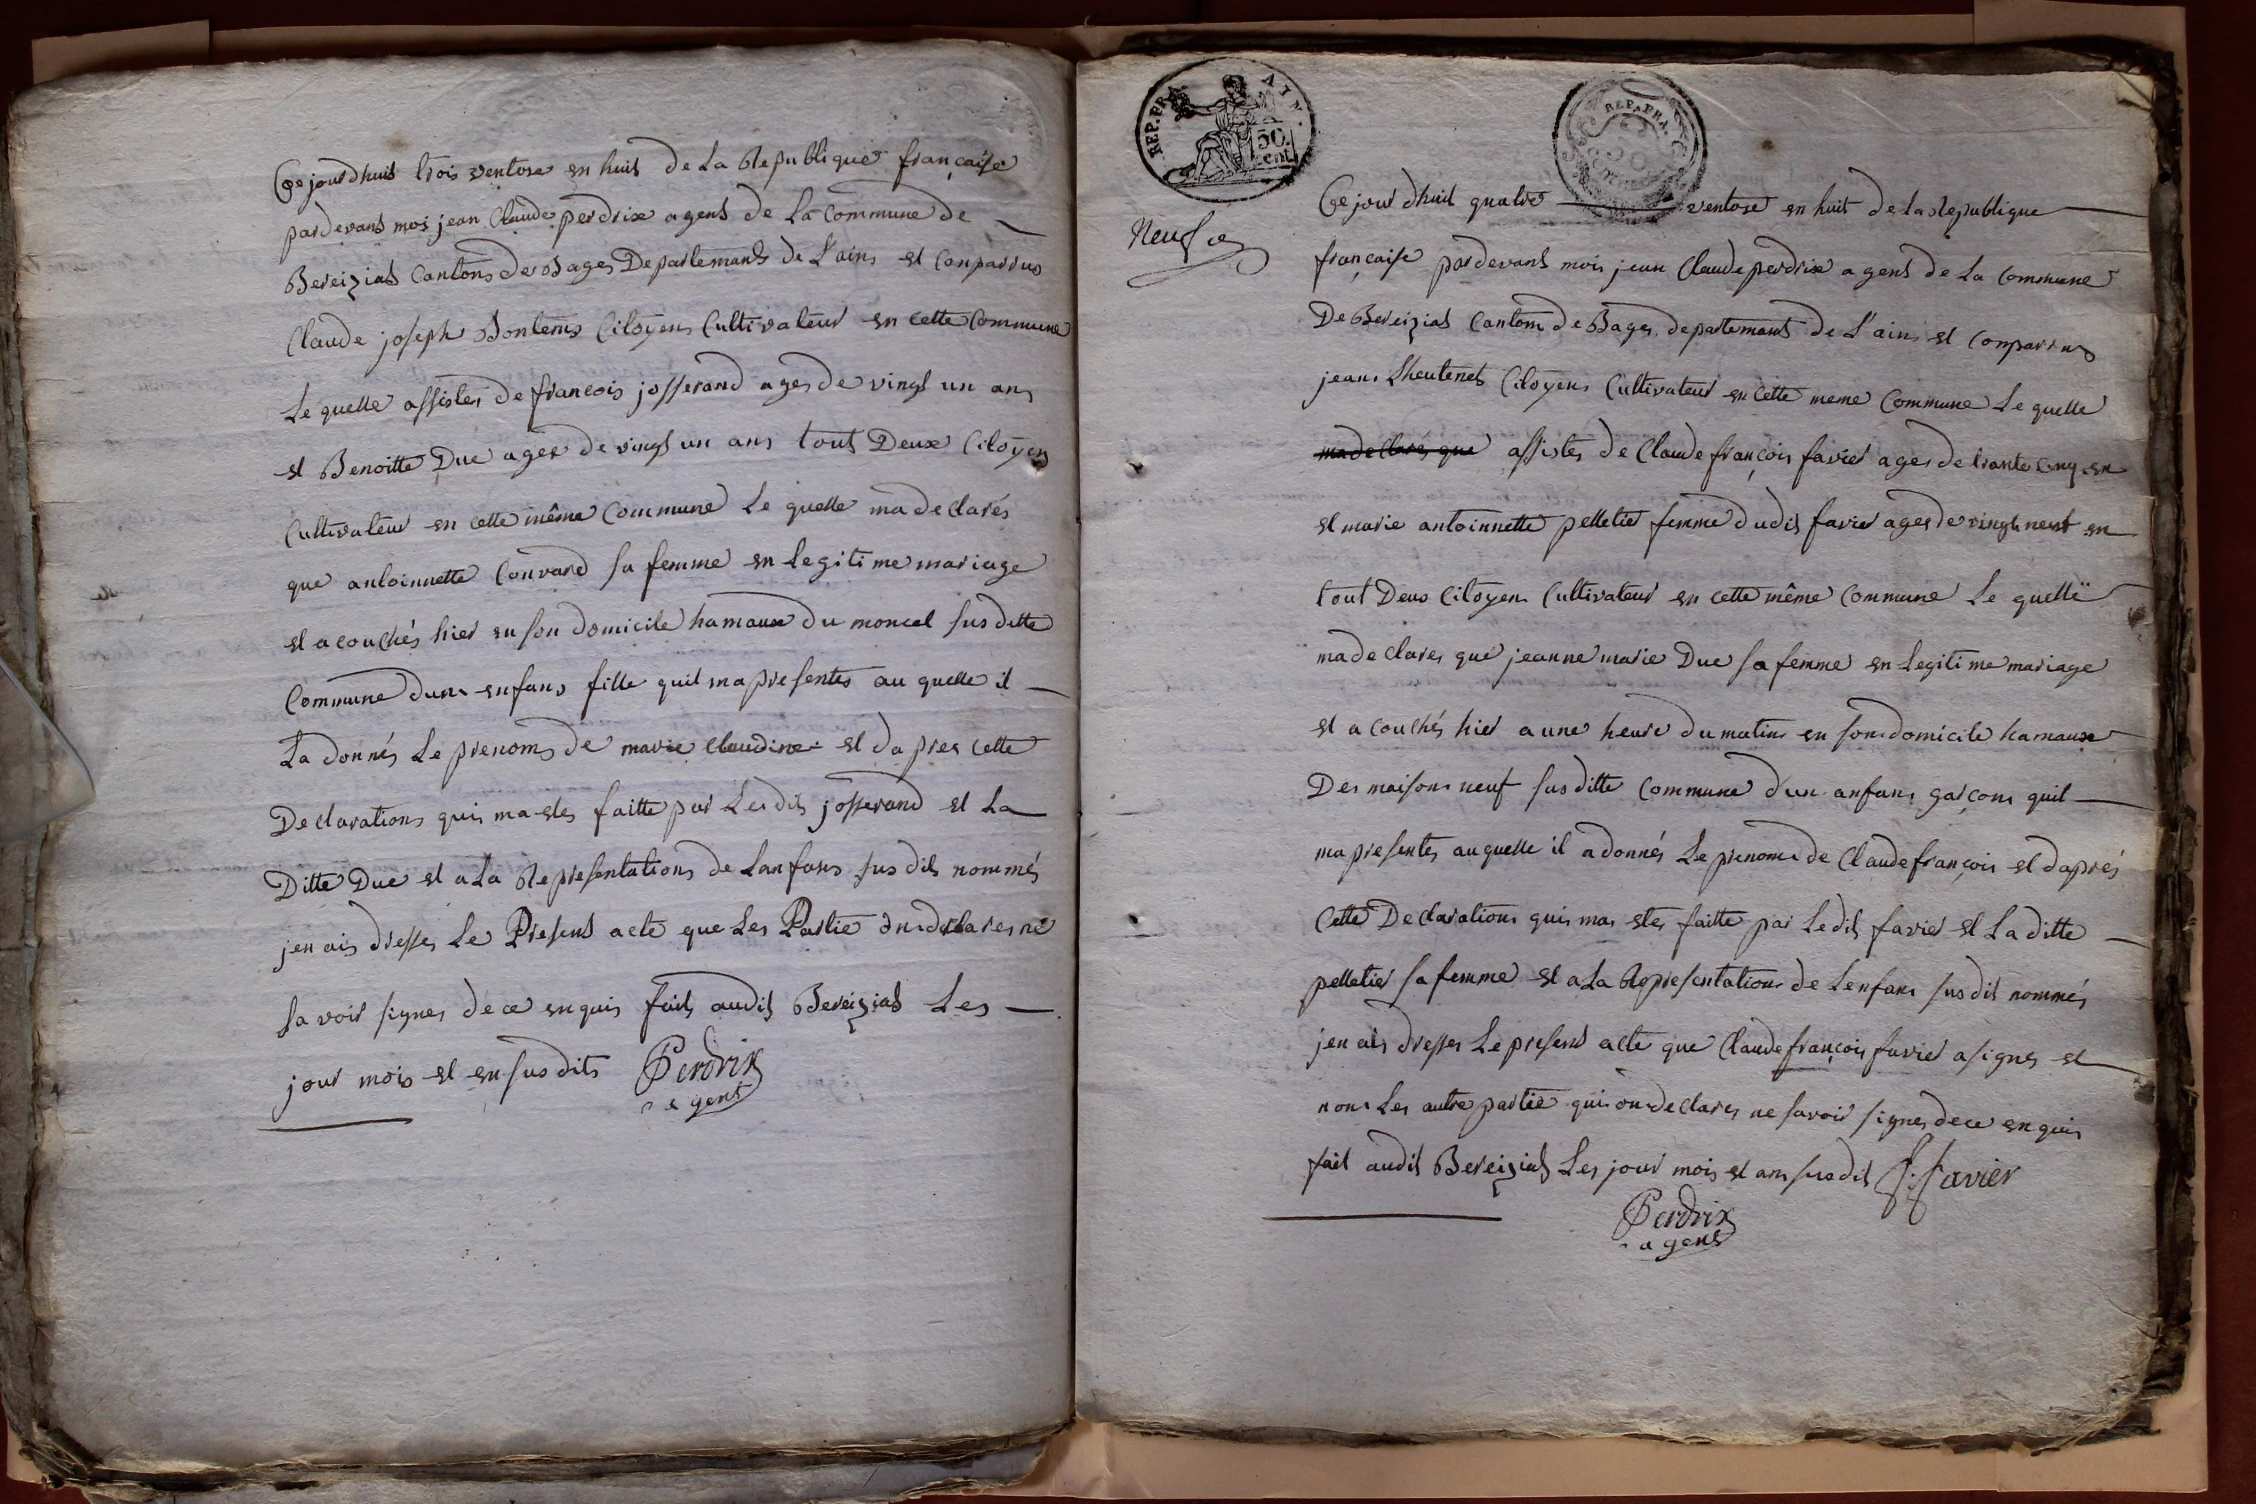 Ce jourdhuit trois ventose en huit de La Republique française
pardevant moi jean Claude perdrix agent de La Commune de
Bereiziat Cantons de Bages Departemants de L'ains et Conparrus
Claude joseph Bontems Citoyens Cultivateur en cette Commune
Le quelle assistes de francois josserand ages de vingt un ans
et Benoitte Duc ages de vingt un ans tout Deux Citoyens
Cultivateur en cette même Commune Le quelle ma declarés
que antoinnette Convard sa femme en Legitime mariage
et a couchés hier en son domicile hamaux du moncel sus ditte
Commune dun enfans fille quil ma presentes au quelle il
La donnés Le prenoms de marie Claudine et da pres cette
Declarations quis ma etes faitte par Les dit josserand et La
Ditte Duc et a La Representations de Lanfans sus dit nommés
jen ais dresses Le Present acte que Les Partie on declares ne
savoir signes de ce enquis fait audit Bereiziat Les
jour mois et en sus dits Perdrix
agent
REP. FRA. AIN.
50. cent.
REP. FRA.
Neuf
Ce jour dhuit quatre ventose en huit de La Republique
française pardevant mois jean Claude perdrix agent de La Commune
De Bereiziat Cantons de Bages departemant de L'ain et Conparrus
jean Lheutenet Citoyens Cultivateur en Cette meme Commune Le quelle
ma declarés que assistes de Claude françois favier ages de trante cinq en
et marie antoinnette pelletier femme dudit favier ages de vingt neuf en
tout Deux Citoyens Cultivateur en cette même Commune Le quelle
ma declares que jeanne marie Duc sa femme en Legitime mariage
et a couchés hier a une heure du matin en son domicile hamaux
Des maisons neuf sus ditte Commune d'un anfans garçons quil
ma presentes au quelle il a donnés Le prenoms de Claude françois et daprés
Cette Declarations quis mas etes faitte par Le dit favier et La ditte
pelletier sa femme et a La Representations de Lenfans sus dit nommés
jen ais dresses Le present acte que Claude françois favier a signes et
nons Les autre partie quis on declares ne savoir signes de ce enquis
fait audit Bereiziat Les jour mois et ans susdit f. favier
Perdrix
agent